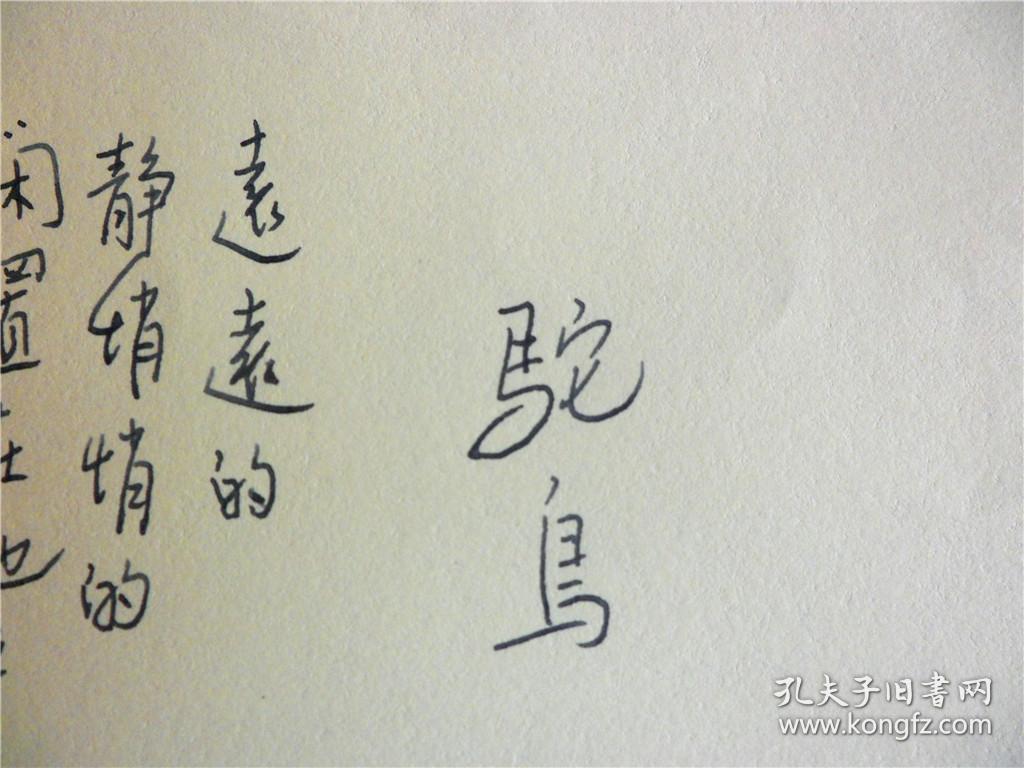 駝鳥
遠遠的
靜悄悄的
閑置在地
孔夫子旧書网
www.kongfz.com